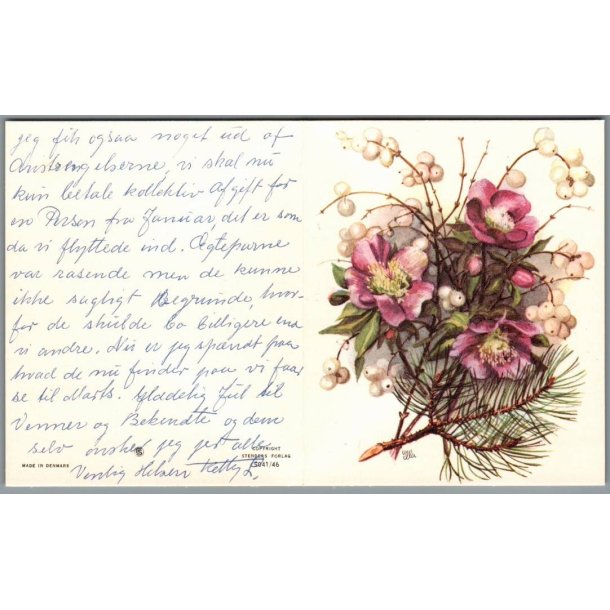 jeg fik ogsaa noget ud af
Anstrengelserne, vi skal nu
kun betale kollektiv Afgift for
en Person fra Januar, det er som
da vi flyttede ind. Ægteparrne
var rasende men de kunne
ikke sagligt Begrunde, hvor-
for de skulde bo billigere end
vi andre. Nu er jeg spændt paa
hvad de nu finder paa vi faar
se til Marts. Glædelig Jul til
Venner og Bekendte og dem
selv ønsker jeg jer alle.
Venlig Hilsen Ketty L.
MADE IN DENMARK
COPYRIGHT
STENDERS FORLAG
5041/46